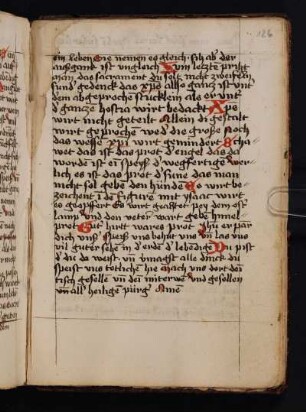 126
ein leben Sie nemen es gleich sih ab der
außganck ist ungleich Zum leczte pricht
man das sacrament du solt nicht zweifeln
sund gedenck das xps alls gancz ist und
dem abgeproche stücklein als er und
d gancze hostia wirt bedackt Xps
wirt nicht geteilt Allein di gestalt
wirt geproche wed die große noch
das wesse xpi wirt gemindert Scha
wet das ist das prot d engel das da
worde ist ei speyß d wegfertige wer
lich es ist das prot d sune das man
nicht sol gebe den hunde Es wirt be
zeichent i de figure mit ysaac wirt
es geopffert Es wirt geaßet pey dem ost
lamp und den veter wirt gebe himel
prot Gut hirt wares prot ihu er par
dich uns Speis uns behut uns un las uns
vil guter sehe in d erde d lebedige Du pist
d du da weist un vmagst alle dinck du
speist uns totliche hie Mach uns dort dein
tisch geselle un dei miterwe und gesellen
un all heiligen pürg Ame